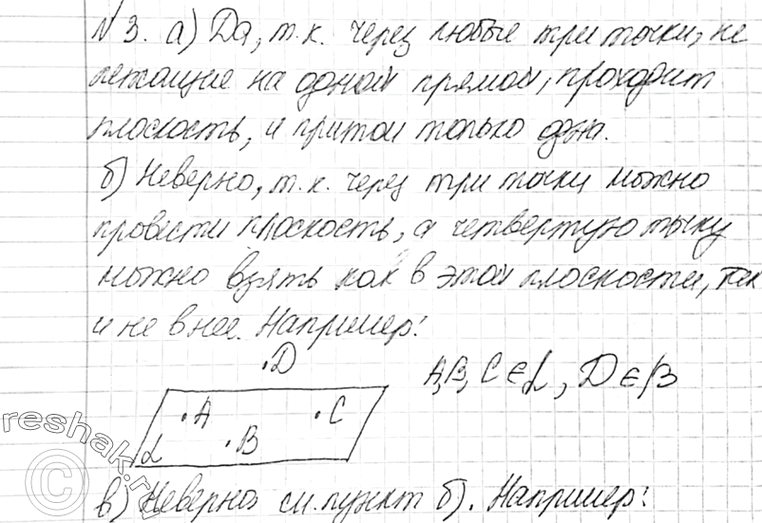 № 3. а) Да, т.к. через любые три точки, не
лежащие на одной прямой, проходит
плоскость, и притом только одна.
б) Неверно, т.к. через три точки можно
провести плоскость, а четвертую точку
можно взять как в этой плоскости, так
и не в нее. Например:
D
A, B, C ∈ α, D ∈ β
A
C
α
B
в) Неверно см. пункт б). Например:
reshak.ru
©